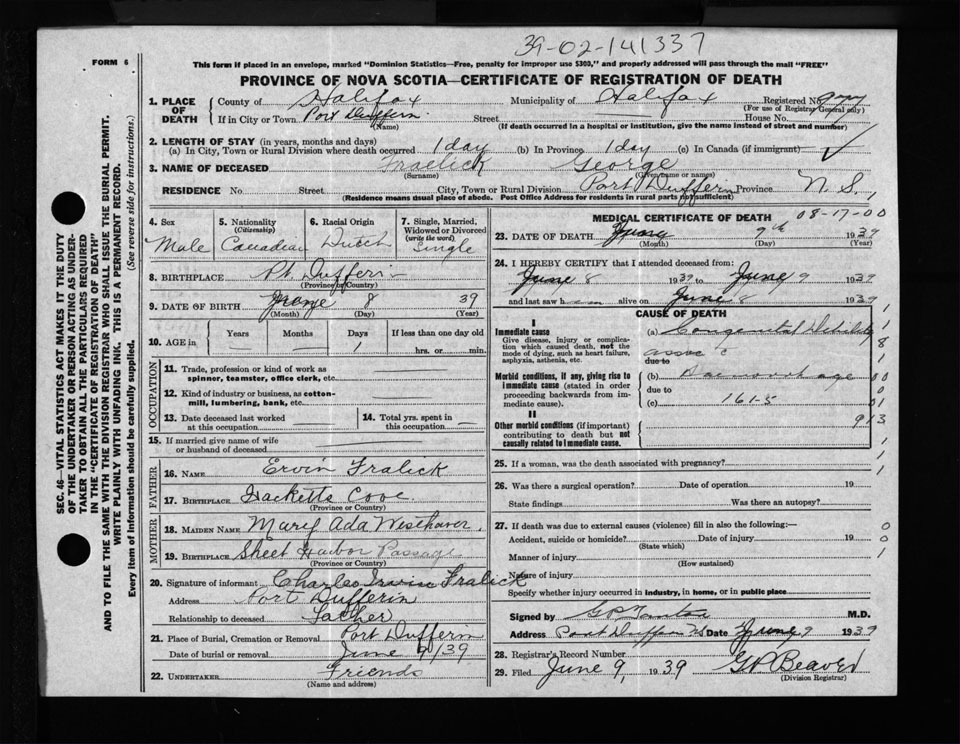 39-02-141337
FORM 6
This form if placed in an envelope, marked "Dominion Statistics—Free, penalty for improper use $300," and properly addressed will pass through the mail "FREE"
PROVINCE OF NOVA SCOTIA—CERTIFICATE OF REGISTRATION OF DEATH
1. PLACE OF DEATH County of Halifax Municipality of Halifax Registered No.
(For use of Registrar General only)
If in City or Town Port Dufferin Street House No.
(Name) (If death occurred in a hospital or institution, give the name instead of street and number)
2. LENGTH OF STAY (in years, months and days)
(a) In City, Town or Rural Division where death occurred 1 day (b) In Province 1 day (c) In Canada (if immigrant)
3. NAME OF DECEASED Fraelick George
(Surname) (Given name or names)
RESIDENCE No. Street City, Town or Rural Division Port Dufferin Province N. S.
(Residence means usual place of abode. Post Office Address for residents in rural parts not sufficient)
SEC. 46—VITAL STATISTICS ACT MAKES IT THE DUTY
OF THE UNDERTAKER OR PERSON ACTING AS UNDER-
TAKER TO OBTAIN ALL THE PARTICULARS REQUIRED
IN THE "CERTIFICATE OF REGISTRATION OF DEATH"
AND TO FILE THE SAME WITH THE DIVISION REGISTRAR WHO SHALL ISSUE THE BURIAL PERMIT.
WRITE PLAINLY WITH UNFADING INK. THIS IS A PERMANENT RECORD.
Every item of Information should be carefully supplied. (See reverse side for instructions.)
4. Sex 5. Nationality (Citizenship) 6. Racial Origin 7. Single, Married, Widowed or Divorced (write the word)
Male Canadian Dutch Single
8. BIRTHPLACE Pt. Dufferin
(Province or Country)
9. DATE OF BIRTH June 8 39
(Month) (Day) (Year)
10. AGE in Years Months Days If less than one day old
1 hrs. or min.
OCCUPATION
11. Trade, profession or kind of work as
spinner, teamster, office clerk, etc.
12. Kind of industry or business, as cotton-
mill, lumbering, bank, etc.
13. Date deceased last worked at this occupation 14. Total yrs. spent in this occupation
15. If married give name of wife
or husband of deceased
FATHER
16. NAME Ervin Fralick
17. BIRTHPLACE Hacketts Cove
(Province or Country)
MOTHER
18. MAIDEN NAME Mary Ada Westhaver
19. BIRTHPLACE Sheet Harbor Passage
(Province or Country)
20. Signature of informant Charles Irvine Fralick
Address Port Dufferin
Relationship to deceased Father
21. Place of Burial, Cremation or Removal Port Dufferin
Date of burial or removal June 9/39
22. UNDERTAKER Friends
(Name and address)
MEDICAL CERTIFICATE OF DEATH
08-17-00
23. DATE OF DEATH June 9th 1939
(Month) (Day) (Year)
24. I HEREBY CERTIFY that I attended deceased from
June 8 1939 to June 9 1939
and last saw h alive on June 8 1939
CAUSE OF DEATH
I
Immediate cause (a) Congenital Debility
Give disease, injury or complica-
tion which caused death, not the
mode of dying, such as heart failure,
asphyxia, asthenia, etc. due to
Morbid conditions, if any, giving rise to (b) Haemorrhage
immediate cause (stated in order due to
proceeding backwards from im-
mediate cause). (c) 161-5
II
Other morbid conditions (if important)
contributing to death but not
causally related to immediate cause.
25. If a woman, was the death associated with pregnancy?
26. Was there a surgical operation? Date of operation 19
State findings Was there an autopsy?
27. If death was due to external causes (violence) fill in also the following:—
Accident, suicide or homicide? Date of injury 19
(State which)
Manner of injury
(How sustained)
Nature of injury
Specify whether injury occurred in industry, in home, or in public place
Signed by M.D.
Address Port Dufferin NS Date June 9 1939
28. Registrar's Record Number
29. Filed June 9, 1939 G P Beaver
(Division Registrar)